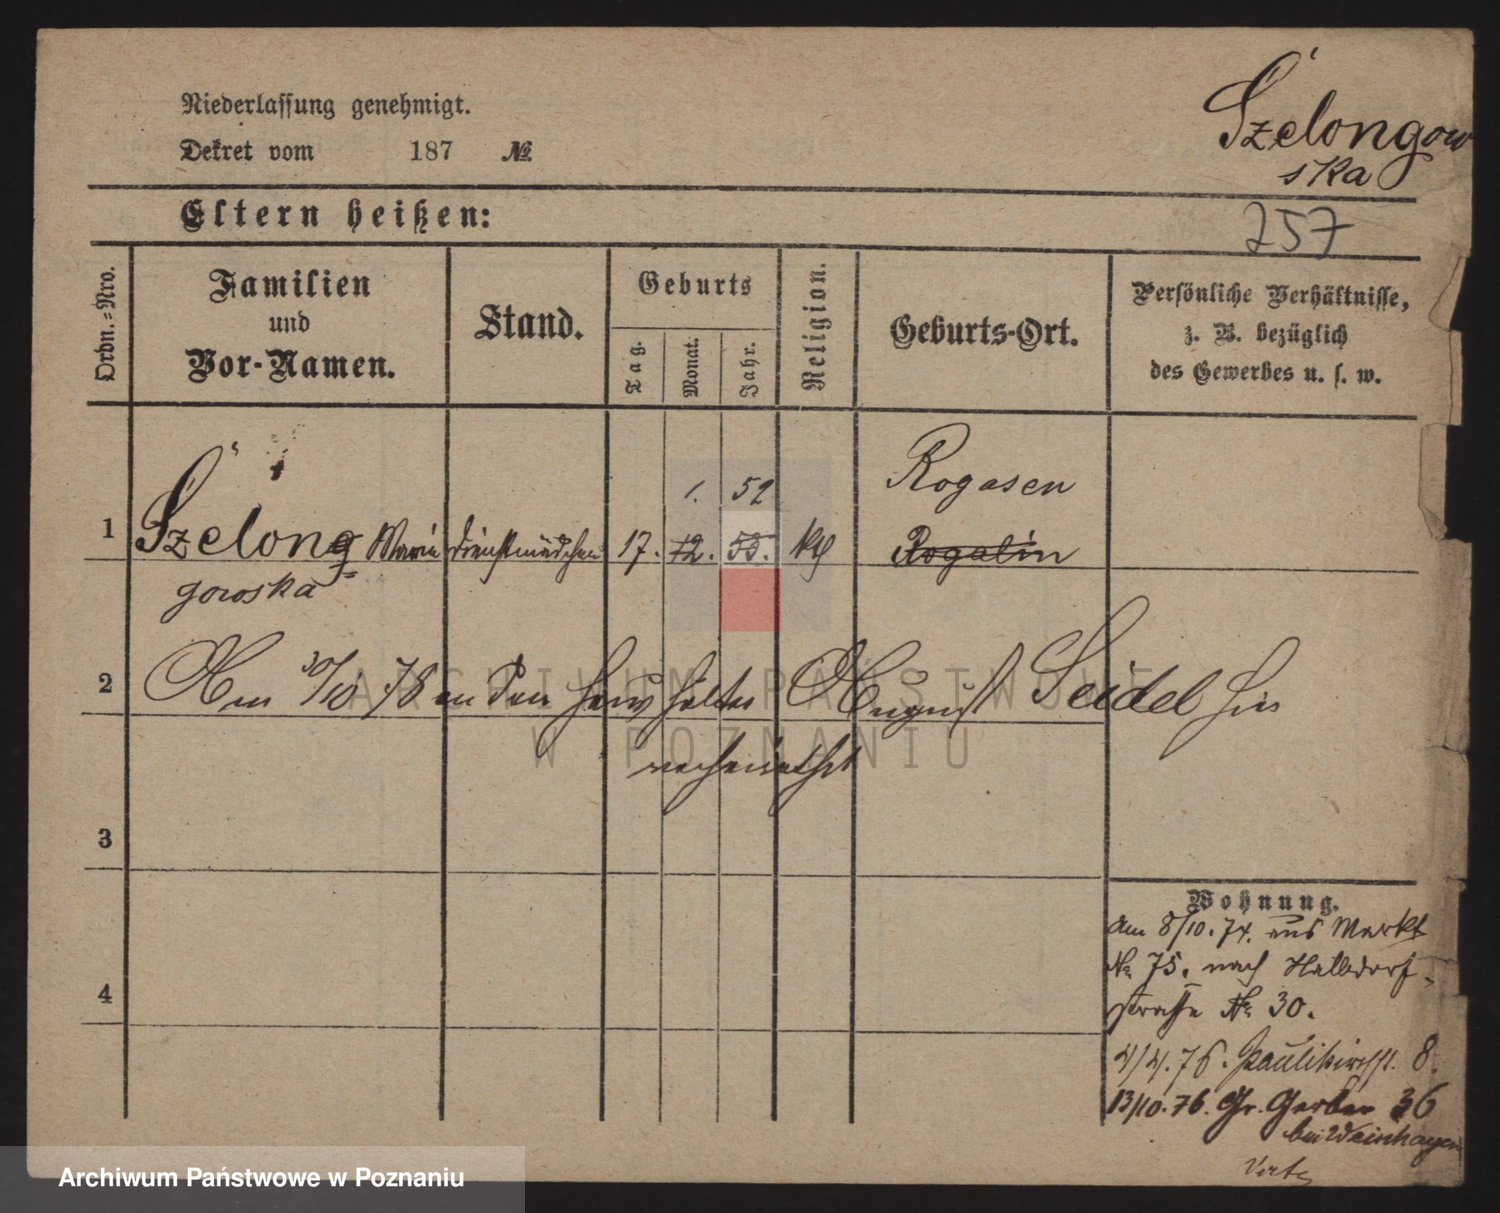 Niederlassung genehmigt.
Dekret vom 187 №
Szelongow
ska
257
Eltern heißen:
Ordn.-Nro.
Familien
und
Vor-Namen.
Stand.
Geburts
Tag.
Monat.
Jahr.
Religion.
Geburts-Ort.
Persönliche Verhältnisse,
z. B. bezüglich
des Gewerbes u. s. w.
1. 52
Rogasen
1 Szelong Marie Dienstmädchen 17. 12. 55. kth Rogalin
gowska
2 Am 30/10 78 an den Haushälter August Seidel hier
verheirathet
3
4
Wohnung.
Am 8/10. 74. aus Markt
№ 75. nach Halbdorf-
strasse № 30.
4/4. 76. Paulikirchst. 8.
13/10. 76. Gr. Gerber 36
bei Weinhagen
ARCHIWUM PAŃSTWOWE
W POZNANIU
Archiwum Państwowe w Poznaniu